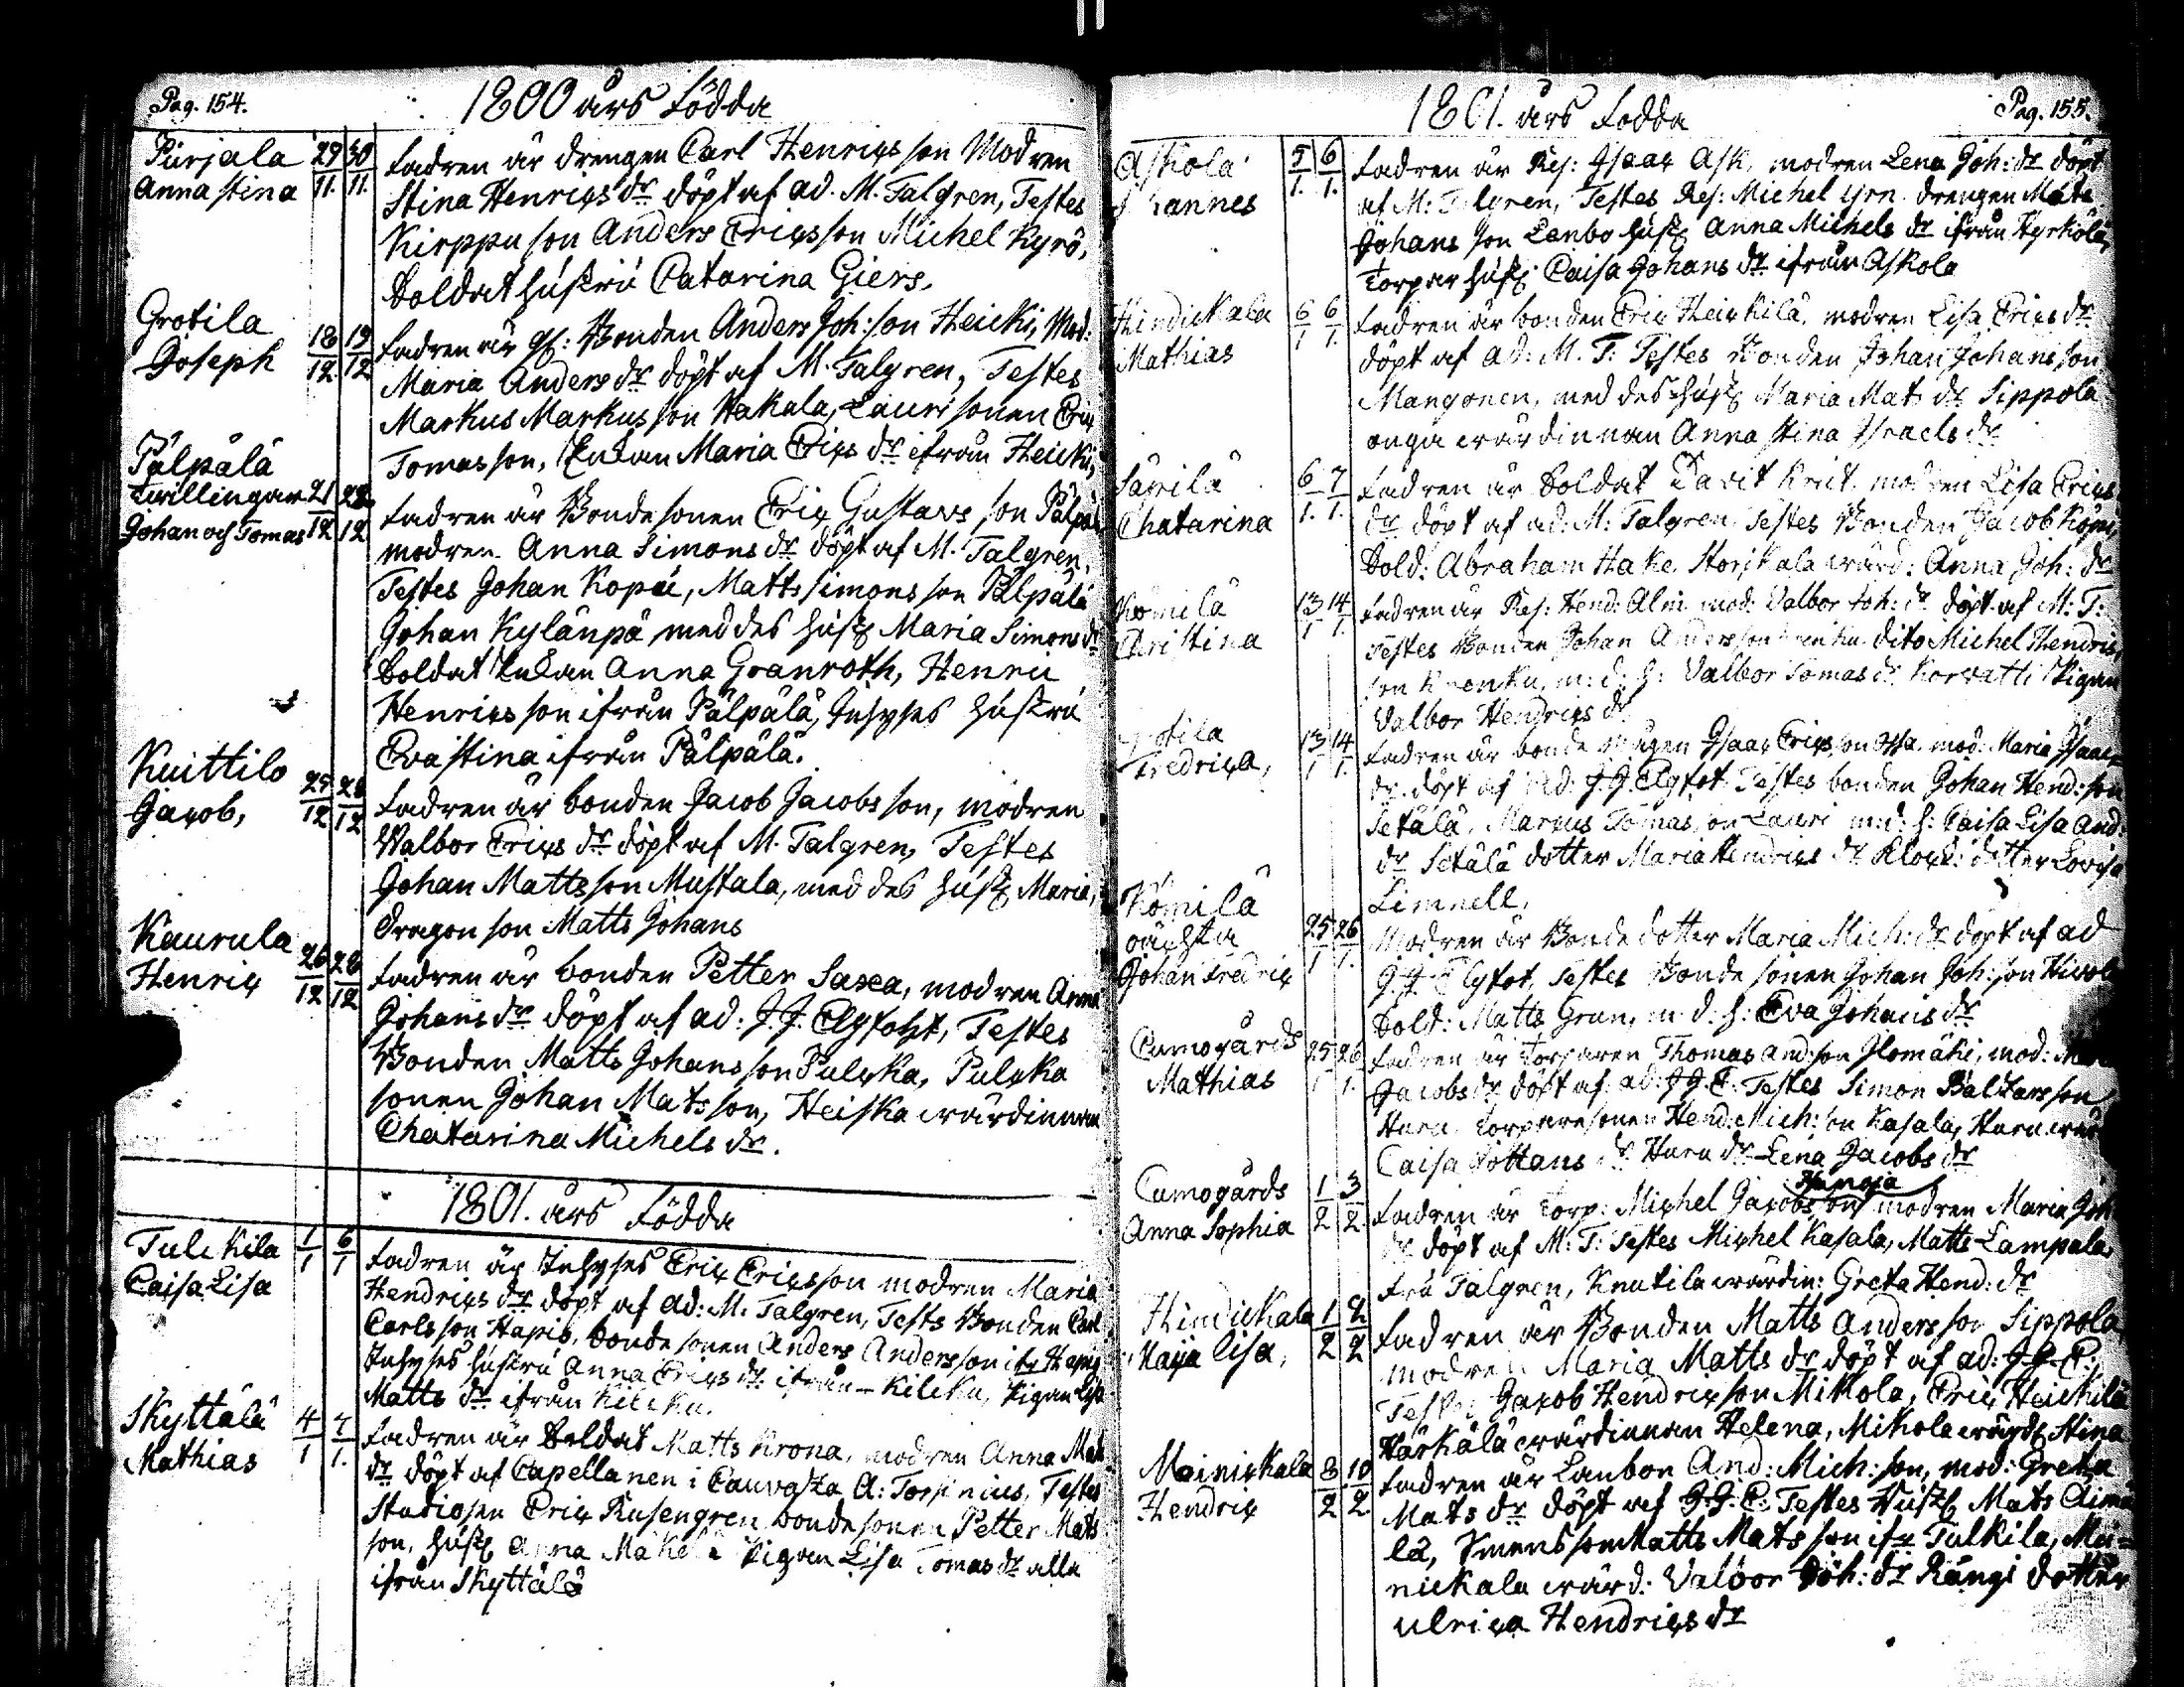 Pag. 154.
1800 års Födda
Purjala 29/11. 30/11. Fadren är drengen Carl Henrics son Modren
Anna Stina Stina Henrics dr döpt af ad. M. Talgren, Testes
Kirppu son Anders Ericsson Michel Kyrö,
Soldat hustru Catarina Giers.
Grotila 18/12 19/12 Fadren är gl: Bonden Anders Joh: son Heicki, Mod:
Joseph Maria Anders dr döpt af M. Talgren, Testes
Markus Markus son Hakala, Lauri sonen Eric
Tomas son, Enkan Maria Erics dr ifrån Heicki,
Pälpälä
Twillingar 21/12 22/12 Fadren är Bonde sonen Eric Gustavs son Pälpälä
Johan och Tomas modren Anna Simons dr döpt af M. Talgren,
Testes Johan Kopu, Matts Simons son Pälpälä
Johan Kylänpä med des hust Maria Simons dr
Soldat Enkan Anna Granroth, Henric
Henrics son ifrån Pälpälä, Inhyses hustru
Eva Stina ifrån Pälpälä.
Kuittilo 27/12 28/12 Fadren är bonden Jacob Jacobs son, modren
Jacob, Walbor Erics dr döpt af M. Talgren, Testes
Johan Matts son Mustala, med des hust Maria,
dragon son Matts Johans
Kaurula 26/12 28/12 Fadren är bonden Petter Saxa, modren Anna
Henric Johans dr döpt af ad: J. J. Elgfoht, Testes
Bonden Matts Johans son Pulcka, Pulcka
sonen Johan Mats son, Heiska wärdinnan
Chatarina Michels dr.
1801. års Födda
Tulckila 1/1 6/1 Fadren är Inhyses Eric Ericsson modren Maria
Caisa Lisa Hendrics dr döpt af ad: M. Talgren, Tests Bonden Carl
Carls son Hapio, bonde sonen Anders Anders son ifr Hapio
Inhyses hustru Anna Erics dr ifrån Kilcku, Pigan Lisa
Matts dr ifrån Kilcku.
Skyttälä 4/1 7/1. Fadren är Soldat Matts Krona, modren Anna Mats
Mathias dr döpt af Capellanen i Cauvatza A: Forsinius, Testes
Studiosen Eric Rusengren bonde sonen Petter Mats
son, hust Anna Makela Pigan Lisa Tomas dr alla
ifrån Skyttälä
1801. års Födda
Pag. 155.
Askola 5/1. 6/1. Fadren är Res: Isaac Ask, modren Lena Joh: dr döpt
Johannes af M: Talgren, Testes Res: Michel Yrn drengen Mats
Johans son Lanbo hust Anna Michels dr ifrån Hyrkölä,
Torpar hust: Caisa Johans dr ifrån Askola
Hindickala 6/1 6/1. Fadren är bonden Eric Heickilä, modren Lisa Erics dr
Mathias döpt af ad: M. T: Testes Bonden Johan Johans son
Mangonen, med des hust Maria Mats dr Sippola
unga wärdinnan Anna Stina Israels dr
Säxilä 6/1. 7/1. Fadren är Soldat Davit Krut. modren Lisa Erics
Chatarina dr döpt af ad: M: Talgren Testes Bonden Jacob Kömi,
Sold: Abraham Hake Storskala wärd: Anna Joh: dr
Kömilä 13/1 14/1. Fadren är Res: Hend: Alm mod: Valbor Joh: dr döpt af M: T:
Christina Testes Bonden Johan Anders son dito Michel Hendrics
son m: d: h: Valbor Tomas dr Korvatti Pigan
Valbor Hendrics dr
13/1 14/1. Fadren är bonde Isaac Erics son mod: Maria Isaacs
Fredrica, dr döpt af Ad: J. J. Elgfot Testes bonden Johan Hend: son
Setälä, Marcus Tomas son Lauri m: d: h: Caisa Lisa And:
dr Setälä dotter Maria Hendrics dr Klock: dotter Lovisa
Limnell.
Kömilä
oächta 25/1 26/1. Modren är Bonde dotter Maria Mich: dr döpt af ad
Johan Fredric J. J. Elgfot, Testes Bonde sonen Johan Joh: son
Sold: Matts Gran, m: d: h: Eva Johans dr
Cumogårds 25/1 26/1. Fadren är torparen Thomas And: son Ilomäki, mod:
Mathias Jacobs dr döpt af: ad: J. J. E. Testes Simon Baltzars son
Haru Torpare sonen Hend: Mich: son Kasala, Haru wärd
Caisa dr Haru dr Lena Jacobs dr
Cumogårds 1/2 3/2. Fadren är Torp: Michel Jacobs son Hanoja modren Maria Joh
Anna Sophia dr döpt af M: T: Testes Michel Kasala, Matts Lampala,
Fru Talgren, Knutila wärdin: Greta Hend: dr
Hindickala 1/2 2/2 Fadren är Bonden Matts Anders son Sippola
Maija Lisa, modren Maria Matts dr döpt af ad: J. J. E:
Testes Jacob Hendric son Mikola, Eric Heickilä
Härkälä wärdinnan Helena, Mikola wärds Stina
Mainickala 8/2 10/2. Fadren är Lanbon And: Mich: son, mod: Greta
Hendric Mats dr döpt af J. J. E: Testes Mats
lä, Smens son Matts Mats son ifr Tulkila, Mai-
nickala wärd: Valbor Joh: dr Rängi dotter
Ulrica Hendrics dr